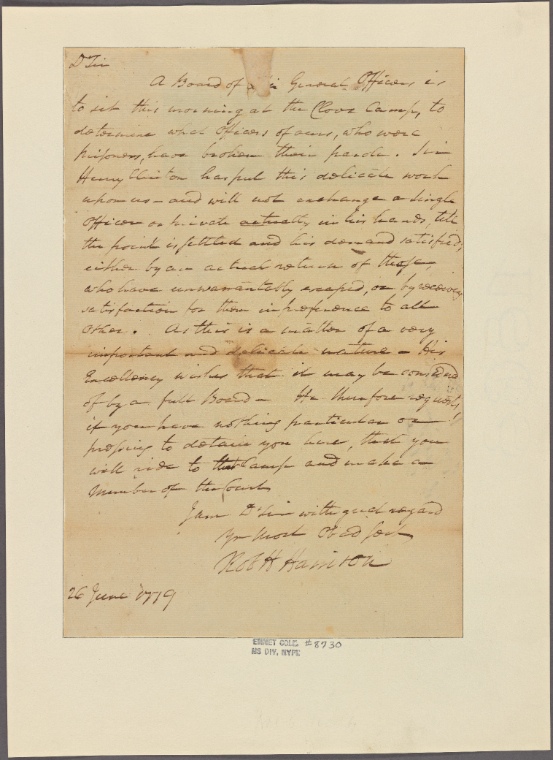 Dr Sir
A Board of General Officers is
to sit this morning at the Clove Camp, to
determine what Officers of ours, who were
prisoners, have broken their parole. Sir
Henry Clinton has put this delicate work
upon us – and will not exchange a single
Officer or private actually in his hands, till
the point is settled and his demand satisfied,
either by an actual return of those,
who have unwarrantably escaped, or by receiving
satisfaction for them in preference to all
other. As this is a matter of a very
important and delicate nature – His
Excellency wishes that it may be considered
of by a full Board – He therefore requests
if you have nothing particular or
pressing to detain you here, that you
will ride to Camp and make a
Member of the Court
I am Dr Sir with great regard
Yr Most Obed Servt
Rob H Harrison
26 June 1779
EMMET COLL. #8730
MS DIV, NYPL